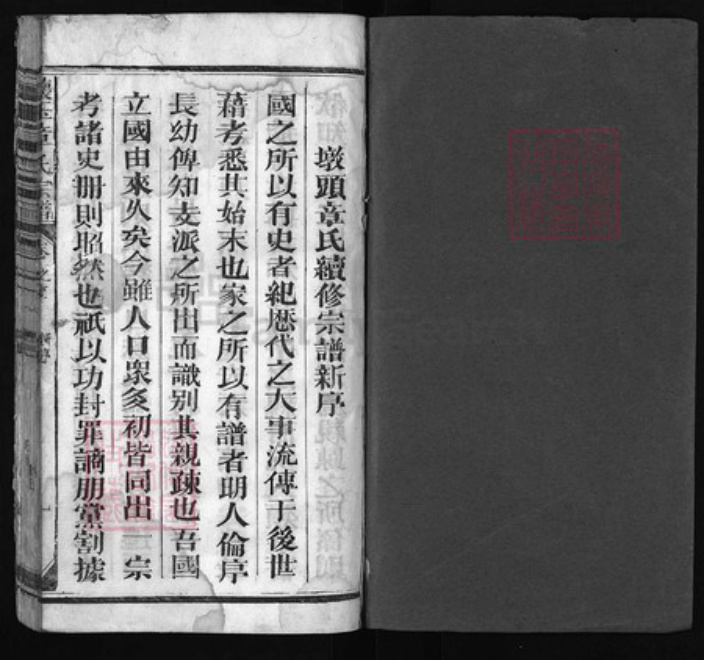 墩頭章氏續修宗譜新序
國之所以有史者紀歷代之大事流傳于後世
藉考悉其始末也家之所以有譜者明人倫序
長幼俾知支派之所出而識別其親疎也吾國
立國由來久矣今雖人口眾多初皆同出一宗
考諸史册則昭然也祇以功封罪謫朋黨割據
章氏宗譜